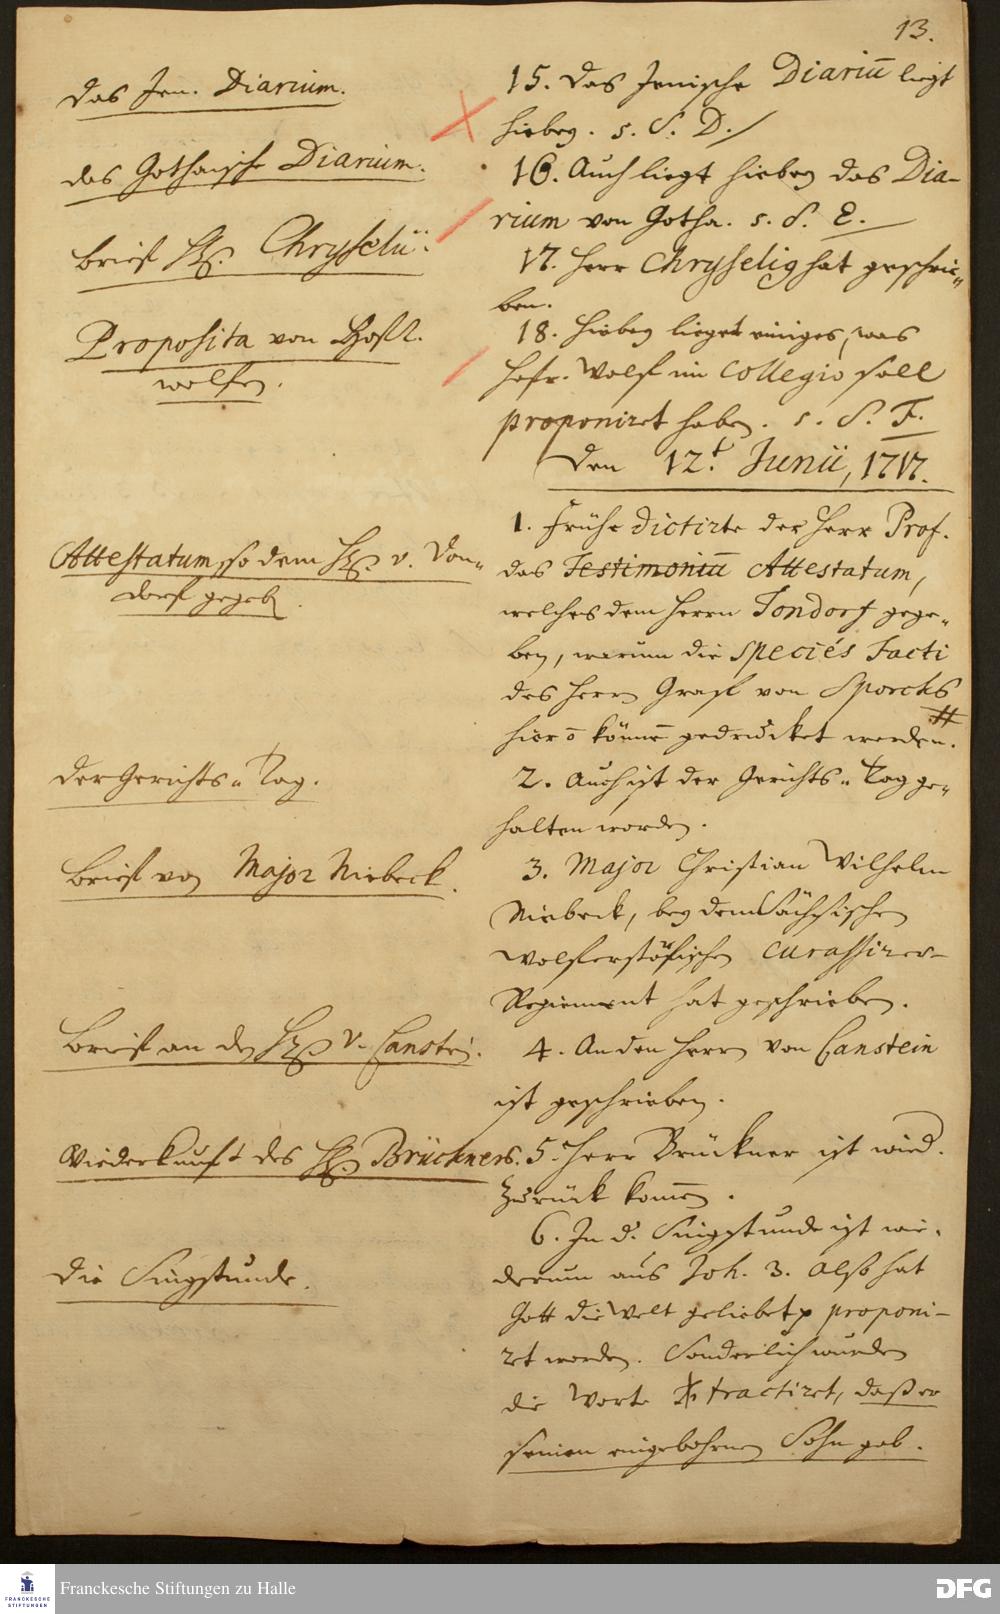 13.
das Jen. Diarium.
das Gothaische Diarium.
brief H. Chryselii.
Proposita von Hoff.
wolfen.
15. das Jenische Diariū liegt
hiebey. s. S. D./
16. Auch liegt hiebey das Dia-
rium von Gotha. s. S. E.
17. Herr Chryselig hat geschrie-
ben.
18. Hiebey lieget einiges, was
Hofr. Wolf im Collegio soll
proponiret haben. s. S. F.
Den 12t. Junii, 1717.
Attestatum, so dem H. v. Ton-
dorf gegeb.
1. Frühe dictirte der Herr Prof.
das Testimoniū Attestatum,
welches dem Herrn Tondorf gege-
ben, warum die species facti
des Herrn Graf von Sporcks
hier õ könne gedrucket werden.
der Gerichts-Tag.
2. Auch ist der Gerichts-Tag ge-
halten worden.
brief von Major Niebeck.
3. Major Christian Wilhelm
Niebeck, bey dem Sächsischen
Curassirer-
Regiement hat geschrieben.
brief an den H. v. Canstein.
4. An den Herrn von Canstein
ist geschrieben.
Wiederkunft des H. Brückners.
5. Herr Brückner ist wied.
zurück komēn.
die Singstunde.
6. In d. Singstunde ist wie-
derum aus Joh. 3. Also hat
Gott die Welt geliebet p proponi-
ret worden. Sonderlich wurden
die Worte tractiret, daß er
seinen eingebohrnen Sohn gab.
FRANCKESCHE
STIFTUNGEN
Franckesche Stiftungen zu Halle
DFG